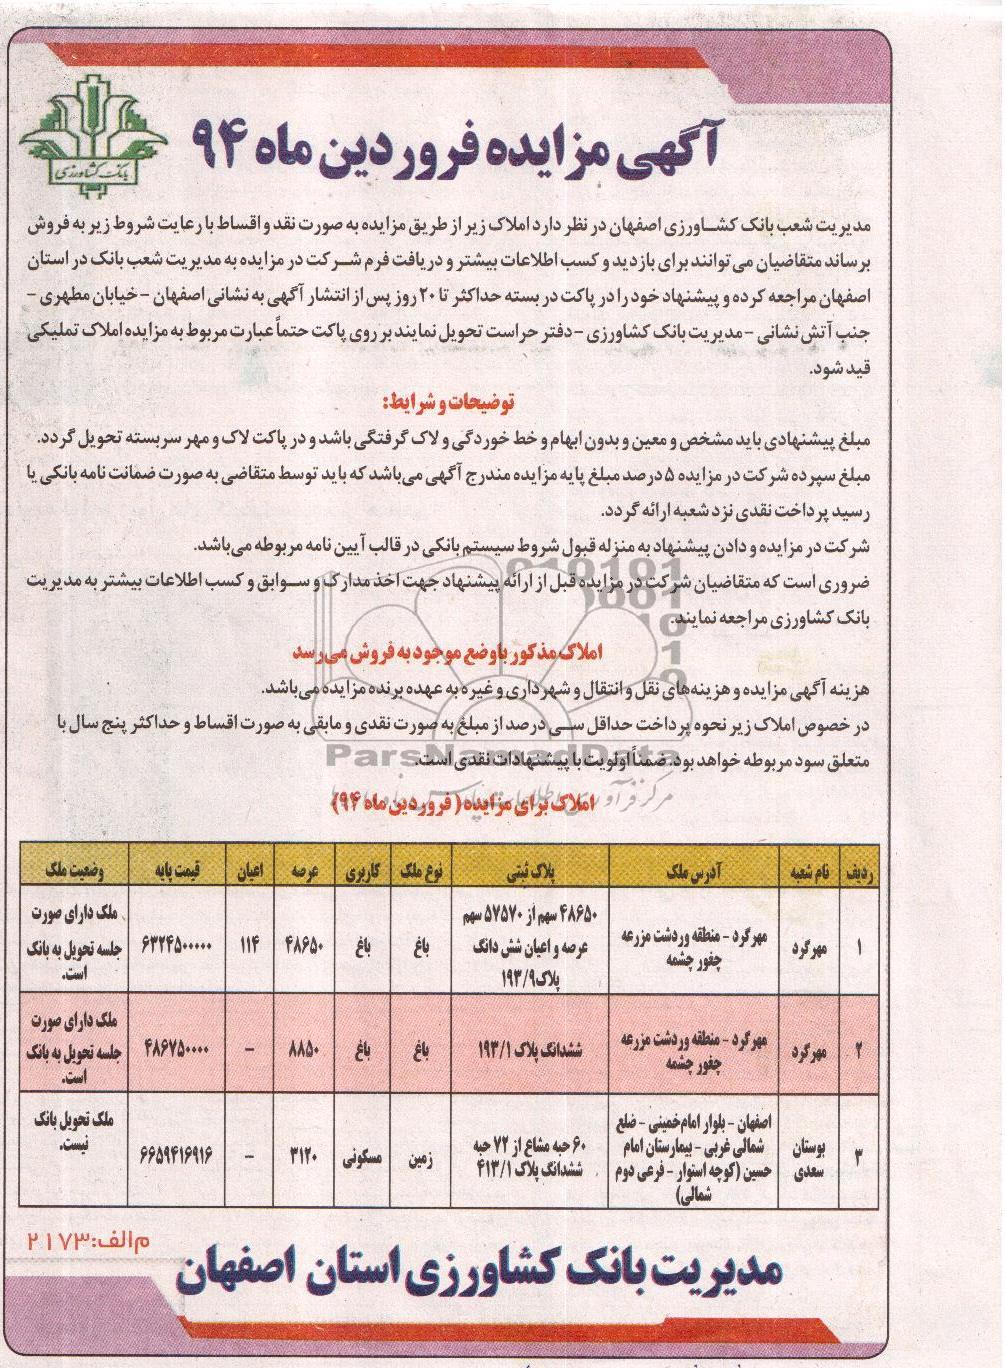 آگهی مزایده فروردین ماه ۹۴
بانک کشاورزی
مدیریت شعب بانک کشاورزی اصفهان در نظر دارد املاک زیر از طریق مزایده به صورت نقد و اقساط با رعایت شروط زیر به فروش
برساند متقاضیان می توانند برای بازدید و کسب اطلاعات بیشتر و دریافت فرم شرکت در مزایده به مدیریت شعب بانک در استان
اصفهان مراجعه کرده و پیشنهاد خود را در پاکت در بسته حداکثر تا ۲۰ روز پس از انتشار آگهی به نشانی اصفهان – خیابان مطهری –
جنب آتش نشانی – مدیریت بانک کشاورزی – دفتر حراست تحویل نمایند بر روی پاکت حتماً عبارت مربوط به مزایده املاک تملیکی
قید شود.
توضیحات و شرایط:
مبلغ پیشنهادی باید مشخص و معین و بدون ابهام و خط خوردگی و لاک گرفتگی باشد و در پاکت لاک و مهر سربسته تحویل گردد.
مبلغ سپرده شرکت در مزایده ۵ درصد مبلغ پایه مزایده مندرج آگهی می‌باشد که باید توسط متقاضی به صورت ضمانت نامه بانکی یا
رسید پرداخت نقدی نزد شعبه ارائه گردد.
شرکت در مزایده و دادن پیشنهاد به منزله قبول شروط سیستم بانکی در قالب آیین نامه مربوطه می‌باشد.
ضروری است که متقاضیان شرکت در مزایده قبل از ارائه پیشنهاد جهت اخذ مدارک و سوابق و کسب اطلاعات بیشتر به مدیریت
بانک کشاورزی مراجعه نمایند.
املاک مذکور با وضع موجود به فروش می‌رسد
هزینه آگهی مزایده و هزینه‌های نقل و انتقال و شهرداری و غیره به عهده برنده مزایده می‌باشد.
در خصوص املاک زیر نحوه پرداخت حداقل سی درصد از مبلغ به صورت نقدی و مابقی به صورت اقساط و حداکثر پنج سال با
متعلق سود مربوطه خواهد بود. ضمناً اولویت با پیشنهادات نقدی است.
ParsNamadData
املاک برای مزایده (فروردین ماه ۹۴)
ردیف نام شعبه آدرس ملک پلاک ثبتی نوع ملک کاربری عرصه اعیان قیمت پایه وضعیت ملک
۱ مهرگرد مهرگرد – منطقه وردشت مزرعه چغور چشمه ۴۸۶۵۰ سهم از ۵۷۵۷۰ سهم عرصه و اعیان شش دانگ پلاک ۱۹۳/۹ باغ باغ ۴۸۶۵۰ ۱۱۴ ۶۳۲۴۵۰۰۰۰۰ ملک دارای صورت جلسه تحویل به بانک است.
۲ مهرگرد مهرگرد – منطقه وردشت مزرعه چغور چشمه ششدانگ پلاک ۱۹۳/۱ باغ باغ ۸۸۵۰ – ۴۸۶۷۵۰۰۰۰ ملک دارای صورت جلسه تحویل به بانک است.
۳ بوستان سعدی اصفهان – بلوار امام‌خمینی – ضلع شمالی غربی – بیمارستان امام حسین (کوچه استوار – فرعی دوم شمالی) ۶۰ حبه مشاع از ۷۲ حبه ششدانگ پلاک ۴۱۳/۱ زمین مسکونی ۳۱۲۰ – ۶۶۵۹۴۱۶۹۱۶ ملک تحویل بانک نیست.
م‌الف: ۲۱۷۳
مدیریت بانک کشاورزی استان اصفهان